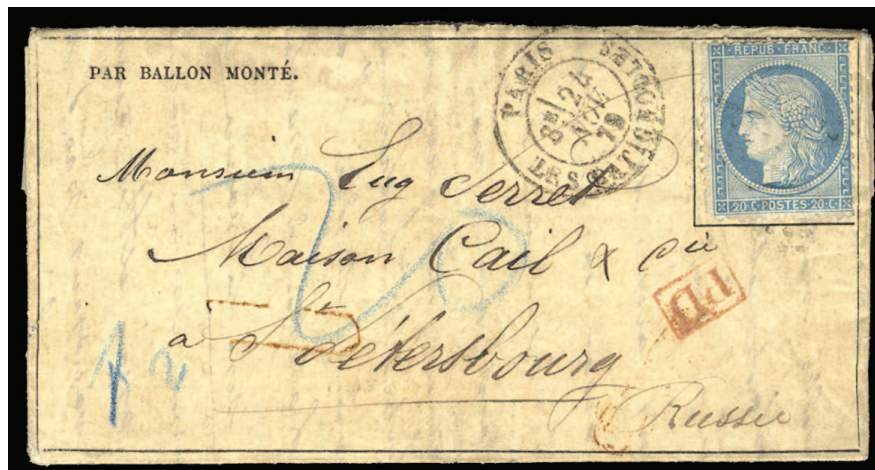 PAR BALLON MONTÉ.
PARIS
8E 24
NOV.
70
REPUB · FRANC ·
20·C·POSTES·20·C
Monsieur Eug Serret
Maison Cail & Cie
PD
à St Pétersbourg
Russie
20
2